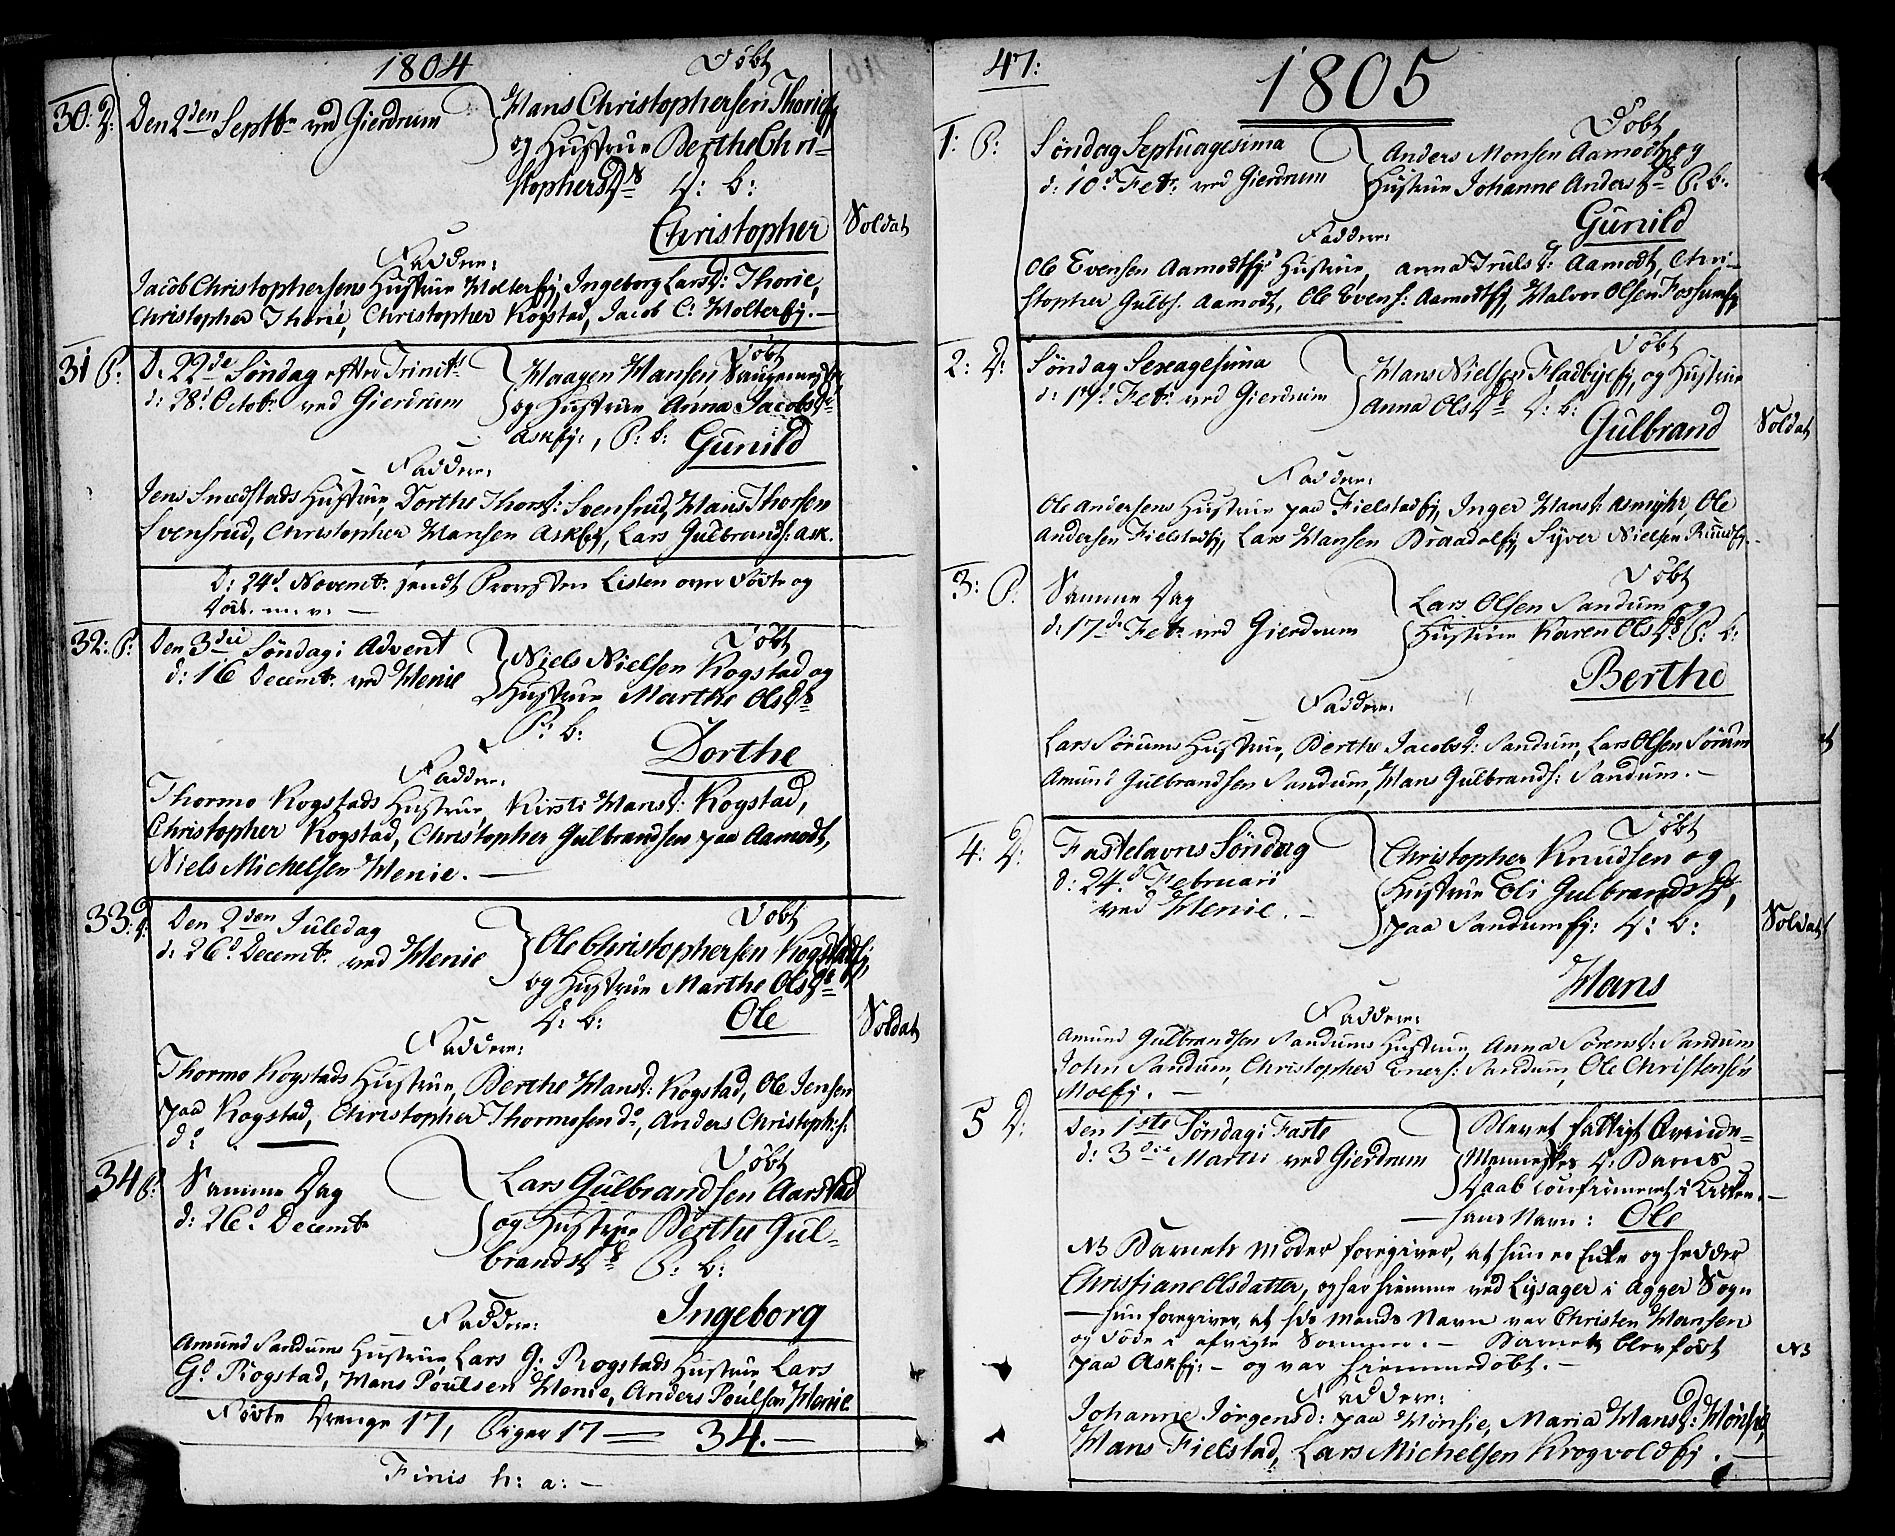 1804
Døbt
30: D: Den 2den Septbr ved Gierdrum
Hans Christophersen Thoriefj
og Hustrue Berthe Chri-
stophersDr D: b:
Christopher
Soldat
Faddere:
Jacob Christophersens Hustrue Holterfj, Ingeborg Larsd: Thorie,
Christopher Thorie, Christopher Kogstad, Jacob C: Holterfj. —
31 P: D. 22de Søndag efter Trinits
d: 28d Octobr ved Gierdrum
Døbt
Haagen Hansen
og Hustrue Anna JacobsDr
Askfj:, P: b: Gunild
Faddere:
Jens Smedstads Hustrue, Dorthe Thorsd: Svensrud, Hans Thorsen
Svensrud, Christopher Hansen Askfj, Lars Gulbrands: Ask.
D: 24d Novembr sendt Provsten Listen over Fødte og
Døde m. v. —
32: P: Den 3die Søndag i Advent
d: 16 Decembr ved Henie
Døbt
Niels Nielsen Kogstad og
Hustrue Marthe OlsDr
P: b:
Dorthe
Faddere:
Thormo Kogstads Hustrue, Kirsti Hansd: Kogstad,
Christopher Kogstad, Christopher Gulbrandsen paa Aamodt,
Niels Michelsen Henie. —
33: D: Den 2den Juledag
d: 26d Decembr ved Henie
Døbt
Ole Christophersen Kogstadfj,
og Hustrue Marthe OlsDr
D: b: Ole
Soldat
Faddere:
Thormo Kogstads Hustrue, Berthe Hansd: Kogstad, Ole Jensen
paa Kogstad, Christopher Thormosen do, Anders Christoph:s:
do
34 P: Samme Dag
d: 26d Decembr
Døbt
Lars Gulbrandsen Aarstad
og Hustrue Berthe Gul-
brandsDr P: b:
Ingeborg
Faddere:
Amund Sandums Hustrue, Lars G: Rogstads Hustrue, Lars
Gd Rogstad, Hans Poulsen Henie, Anders Poulsen Henie
Fødte Drenge 17, Piger 17 — 34. —
Finis h: a: —
47:
1805
1: P: Søndag Septuagesima
d: 10d Febr. ved Gierdrum
Døbt
Anders Monsen Aamodt og
Hustrue Johanne Anders P: b:
Gunild
Faddere:
Ole Evensen Aamodtfjs Hustrue, Anna Trulsd: Aamodt, Chri-
stopher Gulbs. Aamodt, Ole Evens: Aamodtfj, Halvor Olsen Fossumfj
2: D: Søndag Sexagesima
d: 17d Febr. ved Gierdrum
Døbt
Hans Nielsen Fladbyefj, og Hustrue
Anna OlsDr D: b:
Gulbrand
Soldat
Faddere:
Ole Andersens Hustrue paa Fielstadfj, Inger Hansd: Asmyhr, Ole
Andersen Fielstadfj, Lars Hansen Braadolfj, Syver Nielsen Ruudfj. —
3: P: Samme Dag
d: 17de Febr. ved Gierdrum
Døbt
Lars Olsen Sandum og
Hustrue Karen OlsDr P: b:
Berthe
Faddere:
Lars Sørums Hustrue, Berthe Jacobsd: Sandum, Lars Olsen Sørum
Amund Gulbrandsen Sandum, Hans Gulbrands: Sandum. —
4: D: Fastelavns Søndag
d: 24.d Februari
ved Henie. —
Døbt
Christopher Knudsen og
Hustrue Eli GulbrandsDr,
paa Sandumfj: D: b:
Soldat
Hans
Faddere:
Amund Gulbrandsen Sandums Hustrue, Anna Sørensd: Sandum
John Sandum, Christopher Eners: Sandum, Ole Christensen
Moefj. —
5 D: Den 1ste Søndag i Faste
d: 3die Marti ved Gierdrum
Blevet fattigt Qvinde-
Menneskes D: Barns
Daab confirmeret i Kirken. —
— hans Navn: Ole
NB Barnets Moder foregiver, at hun er Enke og hedder
Christiane Olsdatter, og har hiemme ved Lysager i Agger Sogn
— hun foregiver, at hds Mands Navn var Christen Hansen
og døde i afvigte Sommer. — Barnet blev født
paa Askfj: — og var hiemmedøbt. —
NB
Faddere:
Johanne Jørgensd: paa Hønsie, Maria Hansd: Hønsie,
Hans Fielstad, Lars Michelsen Krogvoldfj. —